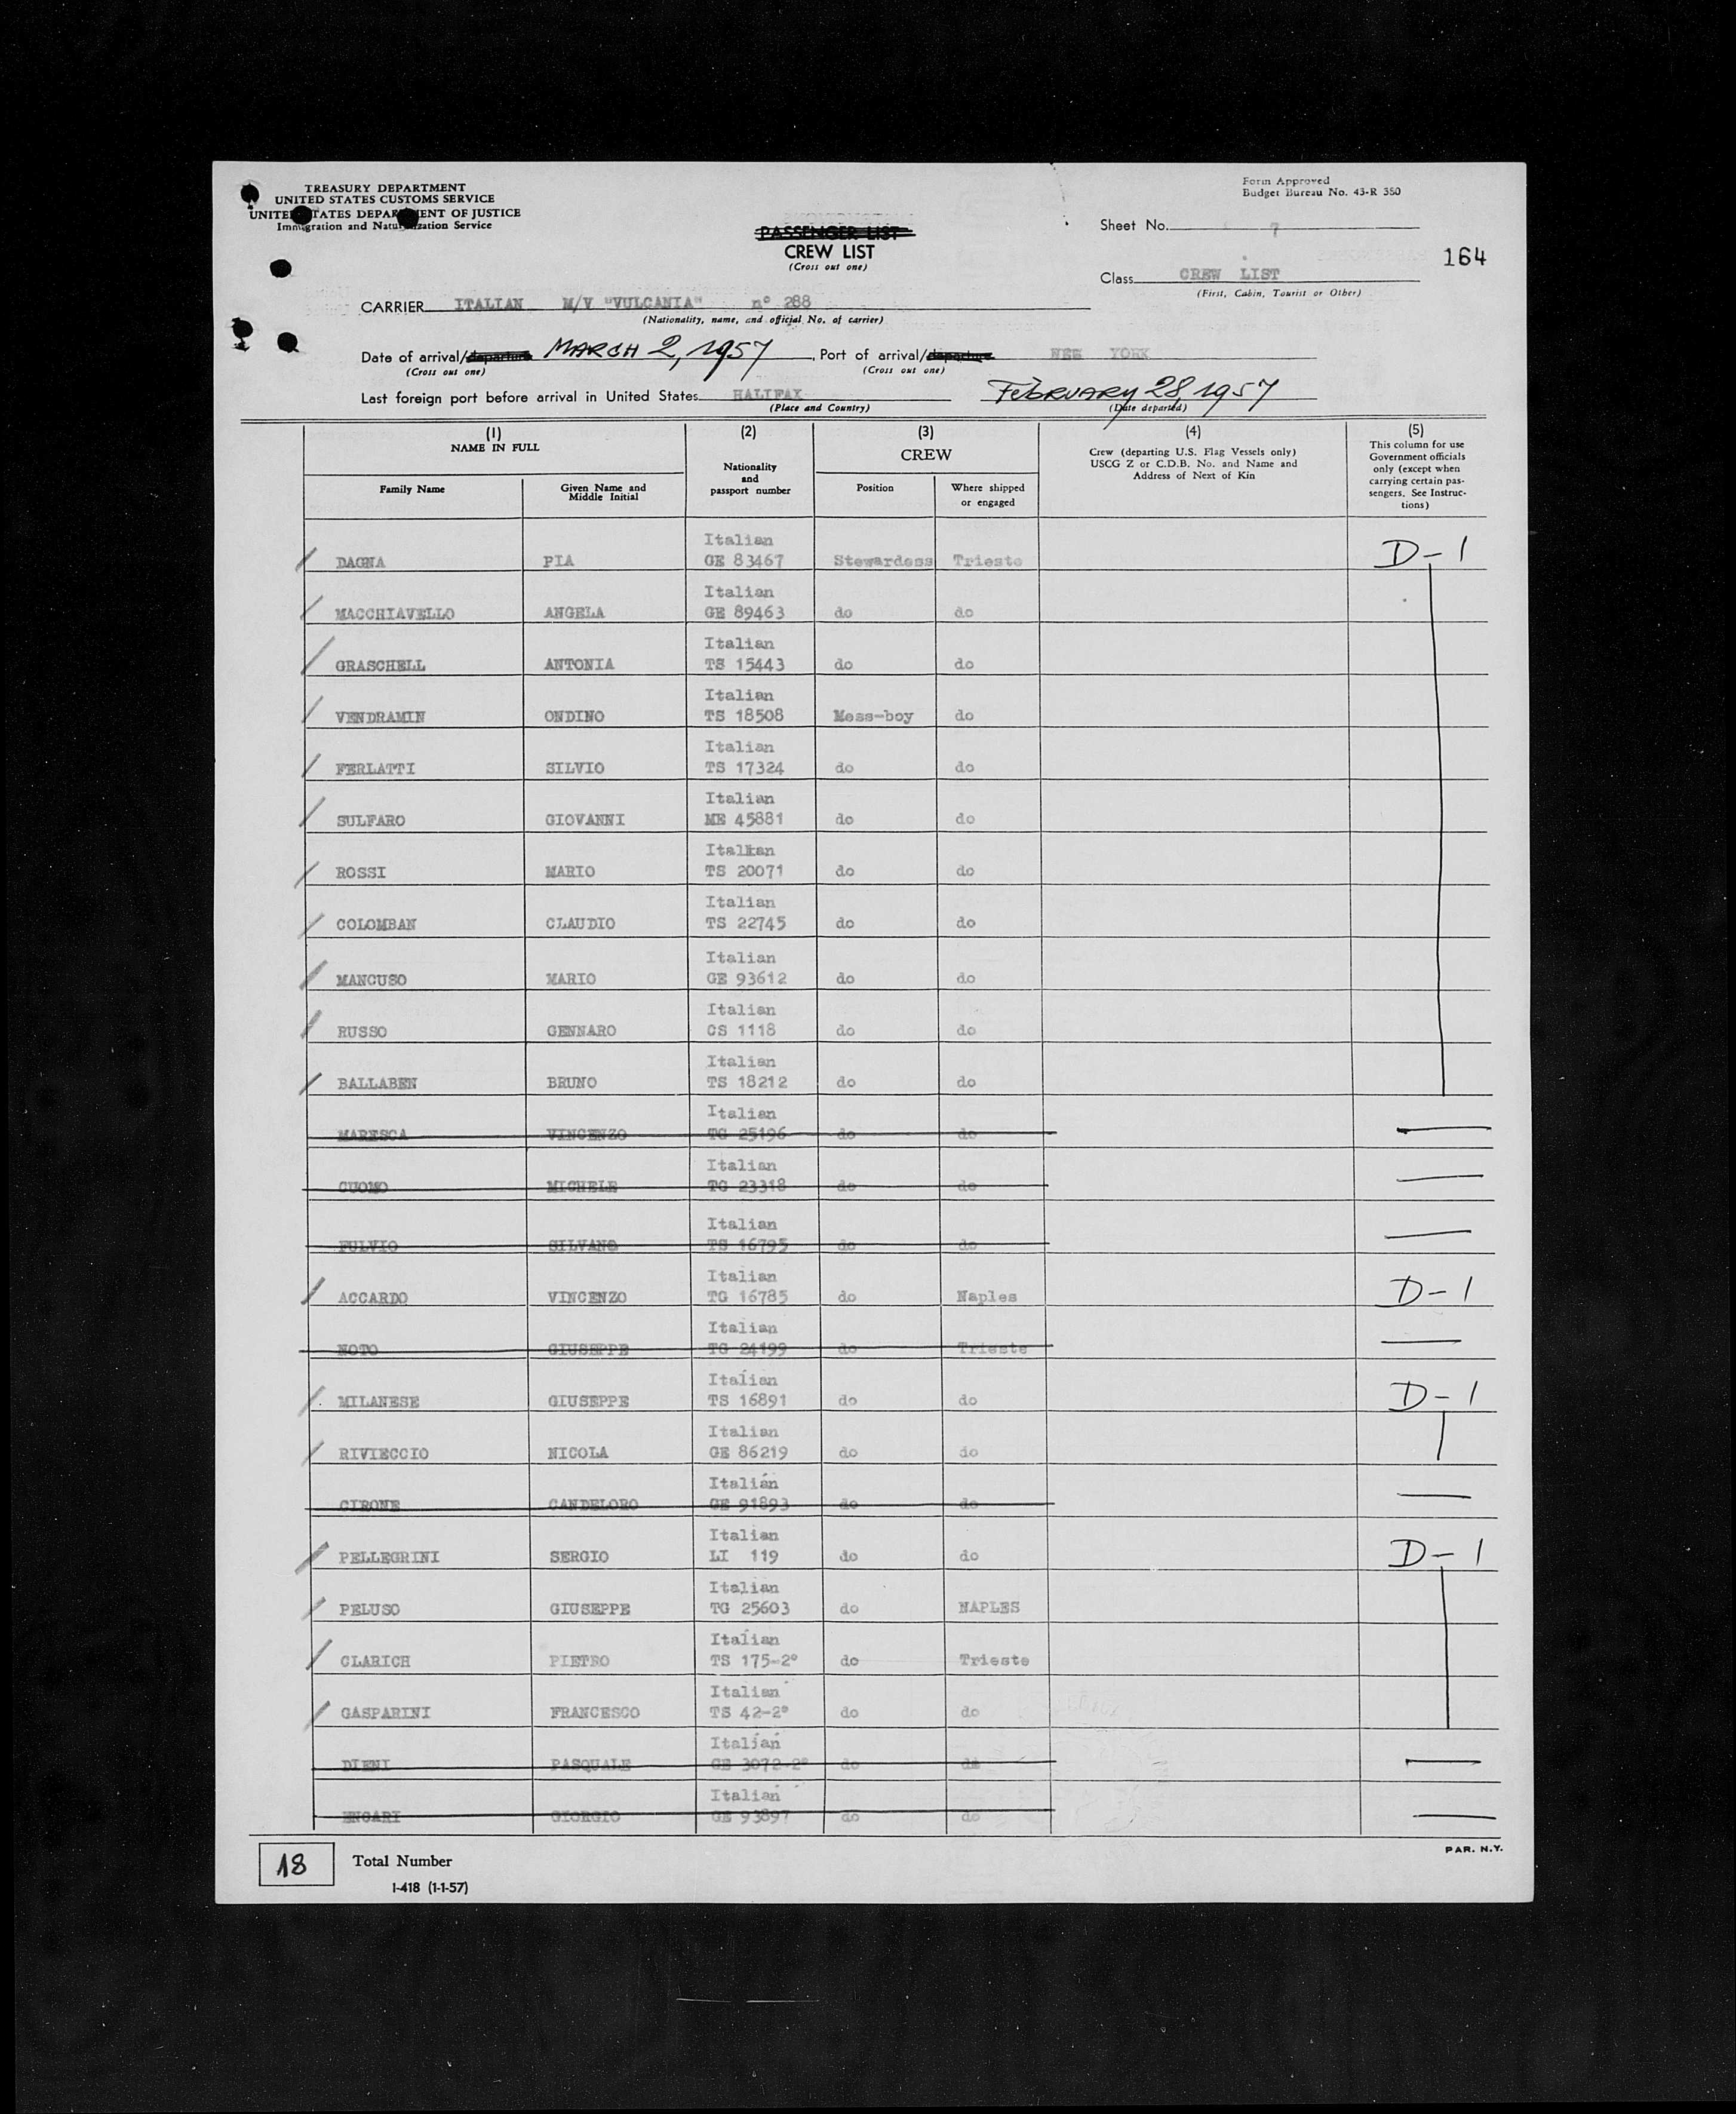 TREASURY DEPARTMENT
UNITED STATES CUSTOMS SERVICE
UNITED STATES DEPARTMENT OF JUSTICE
Immigration and Naturalization Service
Form Approved
Budget Bureau No. 43-R 350
PASSENGER LIST
CREW LIST
(Cross out one)
Sheet No. 7
164
Class CREW LIST
(First, Cabin, Tourist or Other)
CARRIER ITALIAN M/V "VULCANIA" n° 288
(Nationality, name, and official No. of carrier)
Date of arrival/departure MARCH 2, 1957, Port of arrival/departure NEW YORK
(Cross out one) (Cross out one)
Last foreign port before arrival in United States HALIFAX FEBRUARY 28, 1957
(Place and Country) (Date departed)
(1) NAME IN FULL
Family Name
Given Name and Middle Initial
(2)
Nationality and passport number
(3)
CREW
Position
Where shipped or engaged
(4)
Crew (departing U.S. Flag Vessels only)
USCG Z or C.D.B. No. and Name and
Address of Next of Kin
(5)
This column for use
Government officials
only (except when
carrying certain pas-
sengers. See Instruc-
tions)
Italian
DAGNA PIA GE 83467 Stewardess Trieste D-1
Italian
MACCHIAVELLO ANGELA GE 89463 do do
Italian
GRASCHELL ANTONIA TS 15443 do do
Italian
VENDRAMIN ONDINO TS 18508 Mess-boy do
Italian
FERLATTI SILVIO TS 17324 do do
Italian
SULFARO GIOVANNI ME 45881 do do
Italian
ROSSI MARIO TS 20071 do do
Italian
COLOMBAN CLAUDIO TS 22745 do do
Italian
MANCUSO MARIO GE 93612 do do
Italian
RUSSO GENNARO CS 1118 do do
Italian
BALLABEN BRUNO TS 18212 do do
Italian
MARESCA VINCENZO TG 25196 do do
Italian
CUOMO MICHELE TG 23318 do do
Italian
FULVIO SILVANO TS 16795 do do
Italian
ACCARDO VINCENZO TG 16785 do Naples D-1
Italian
NOTO GIUSEPPE TG 24199 do Trieste
Italian
MILANESE GIUSEPPE TS 16891 do do D-1
Italian
RIVIECCIO NICOLA GE 86219 do do
Italian
CIRONE CANDELORO GE 91893 do do
Italian
PELLEGRINI SERGIO LI 119 do do D-1
Italian
PELUSO GIUSEPPE TG 25603 do NAPLES
Italian
CLARICH PIETRO TS 175-2° do Trieste
Italian
GASPARINI FRANCESCO TS 42-2° do do
Italian
DIENI PASQUALE GE 3072-2° do do
Italian
ENGARI GIORGIO GE 93897 do do
18 Total Number
I-418 (1-1-57)
PAR. N.Y.